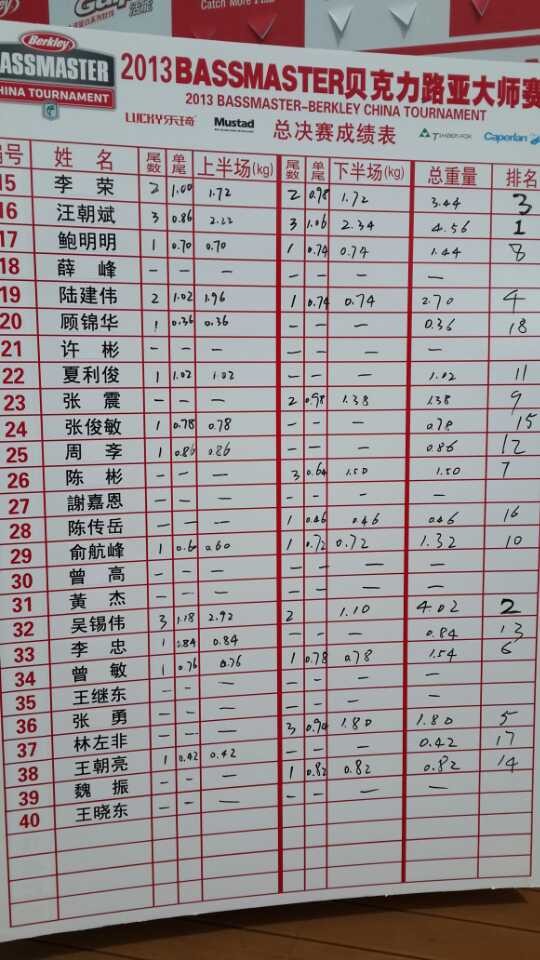 Berkley
BASSMASTER
CHINA TOURNAMENT
Catch More Fish
2013BASSMASTER贝克力路亚大师赛
2013 BASSMASTER-BERKLEY CHINA TOURNAMENT
LUCKY乐琦 Mustad 总决赛成绩表 TIMBER-FOX Caperlan
编号 姓名 尾数 单尾 上半场(kg) 尾数 单尾 下半场(kg) 总重量 排名
15 李荣 2 1.00 1.72 2 0.98 1.72 3.44 3
16 汪朝斌 3 0.86 2.22 3 1.06 2.34 4.56 1
17 鲍明明 1 0.70 0.70 1 0.74 0.74 1.44 8
18 薛峰 — — — — — — —
19 陆建伟 2 1.02 1.96 1 0.74 0.74 2.70 4
20 顾锦华 1 0.36 0.36 — — — 0.36 18
21 许彬 — — — — — — —
22 夏利俊 1 1.02 1.02 — — — 1.02 11
23 张震 — — — 2 0.98 1.38 1.38 9
24 张俊敏 1 0.78 0.78 — — — 0.78 15
25 周 1 0.86 0.86 — — — 0.86 12
26 陈彬 — — — 3 0.64 1.50 1.50 7
27 謝嘉恩 — — — — — — —
28 陈传岳 — — — 1 0.46 0.46 0.46 16
29 俞航峰 1 0.60 0.60 1 0.72 0.72 1.32 10
30 曾高 — — — — — — —
31 黄杰 — — — — — — —
32 吴锡伟 3 1.18 2.92 2 1.10 4.02 2
33 李忠 1 0.84 0.84 — — — 0.84 13
34 曾敏 1 0.76 0.76 1 0.78 0.78 1.54 6
35 王继东 — — — — — — —
36 张勇 — — — — — — —
37 林左非 — — — 3 0.94 1.80 1.80 5
38 王朝亮 1 0.42 0.42 — — — 0.42 17
39 魏振 — — — 1 0.82 0.82 0.82 14
40 王晓东 — — — — — — —